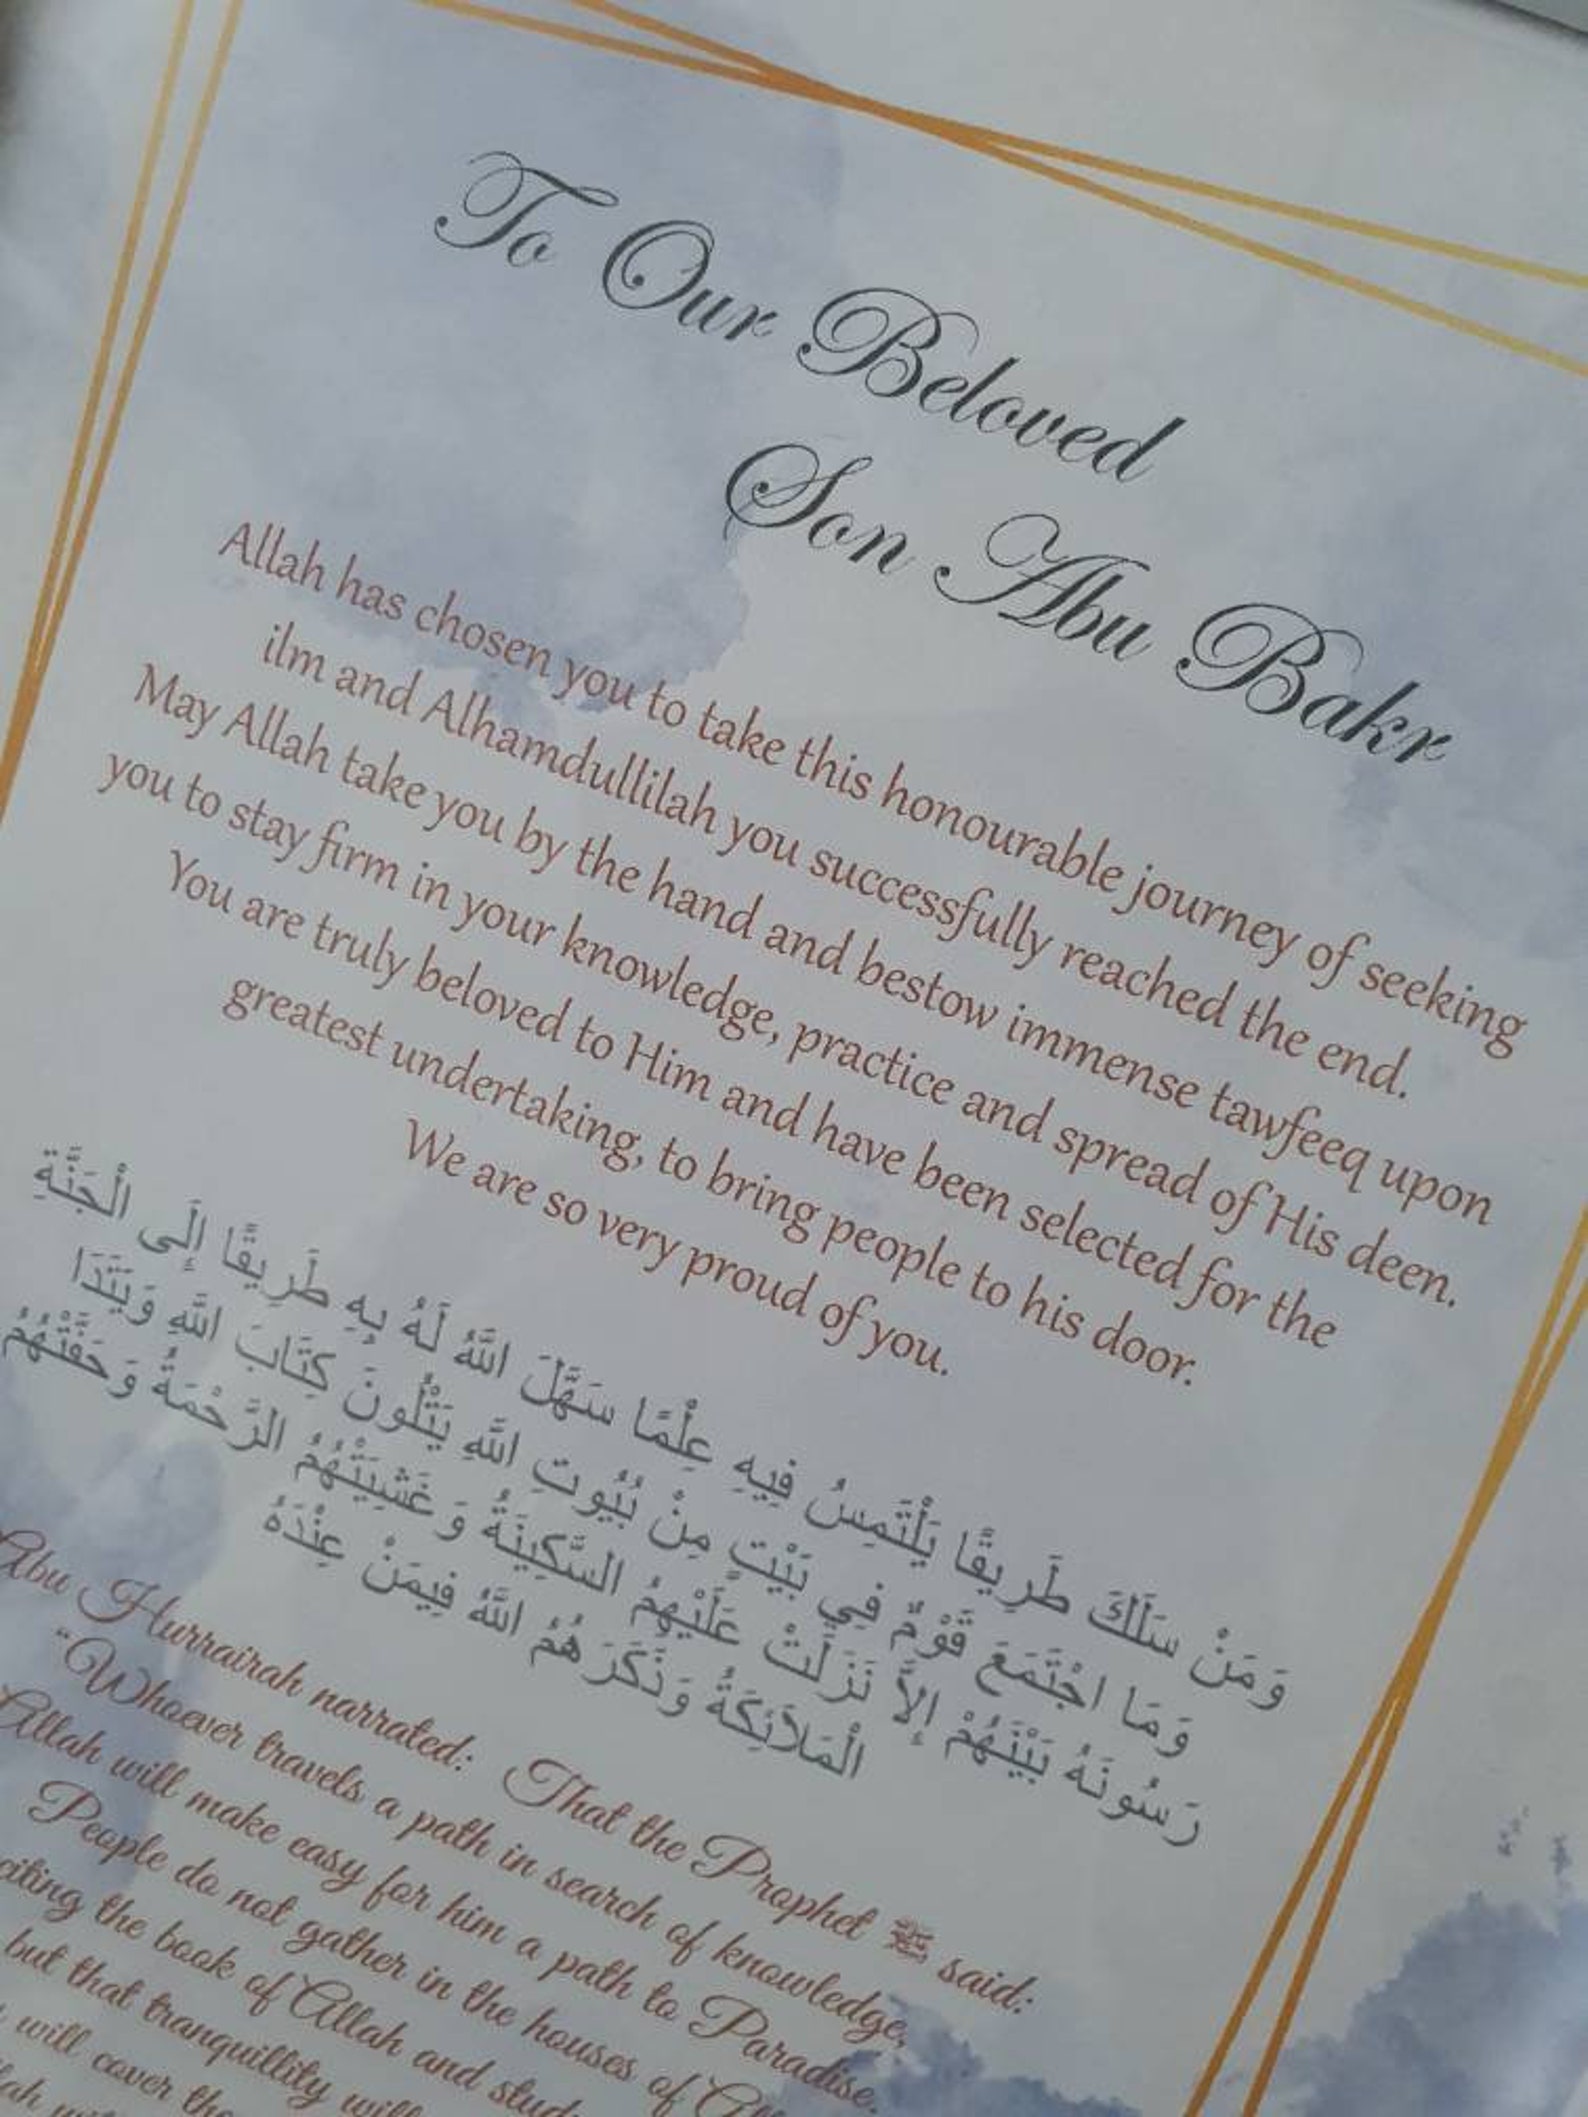 To Our Beloved
Son Abu Bakr
Allah has chosen you to take this honourable journey of seeking
ilm and Alhamdullilah you successfully reached the end.
May Allah take you by the hand and bestow immense tawfeeq upon
you to stay firm in your knowledge, practice and spread of His deen.
You are truly beloved to Him and have been selected for the
greatest undertaking, to bring people to his door.
We are so very proud of you.
وَمَنْ سَلَكَ طَرِيقًا يَلْتَمِسُ فِيهِ عِلْمًا سَهَّلَ اللَّهُ لَهُ بِهِ طَرِيقًا إِلَى الْجَنَّةِ
وَمَا اجْتَمَعَ قَوْمٌ فِي بَيْتٍ مِنْ بُيُوتِ اللَّهِ يَتْلُونَ كِتَابَ اللَّهِ وَيَتَدَا
رَسُونَهُ بَيْنَهُمْ إِلاَّ نَزَلَتْ عَلَيْهِمُ السَّكِينَةُ وَ غَشِيَتْهُمُ الرَّحْمَةُ وَ حَفَّتْهُمُ
الْمَلاَئِكَةُ وَذَكَرَ هُمُ اللَّهُ فِيمَنْ عِنْدَهُ
Abu Hurrairah narrated: That the Prophet ﷺ said:
"Whoever travels a path in search of knowledge,
Allah will make easy for him a path to Paradise.
People do not gather in the houses of
the book of Allah and
but that tranquillity will
will cover